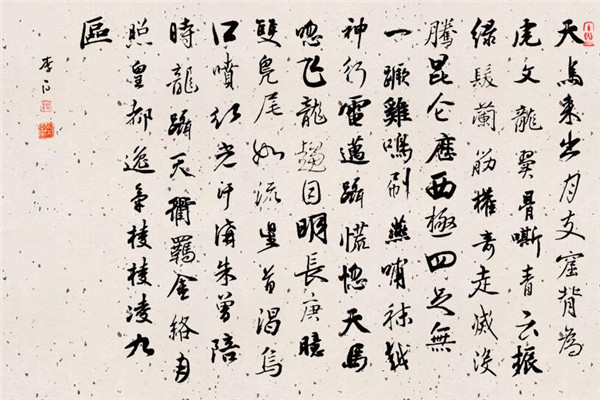 天馬來出月支窟背為
虎文龍翼骨嘶青云振
綠髮蘭筋權奇走滅沒
騰昆仑歷西極四足無
一蹶雞鳴刷燕哺秣越
神行電邁躡慌惚天馬
飞龍趨目明長庚臆
雙凫尾如流星首渴烏
口噴红光汗溝朱曾陪
時龍躡天衢羈金絡月
照皇都逸氣棱棱凌九
區
李白